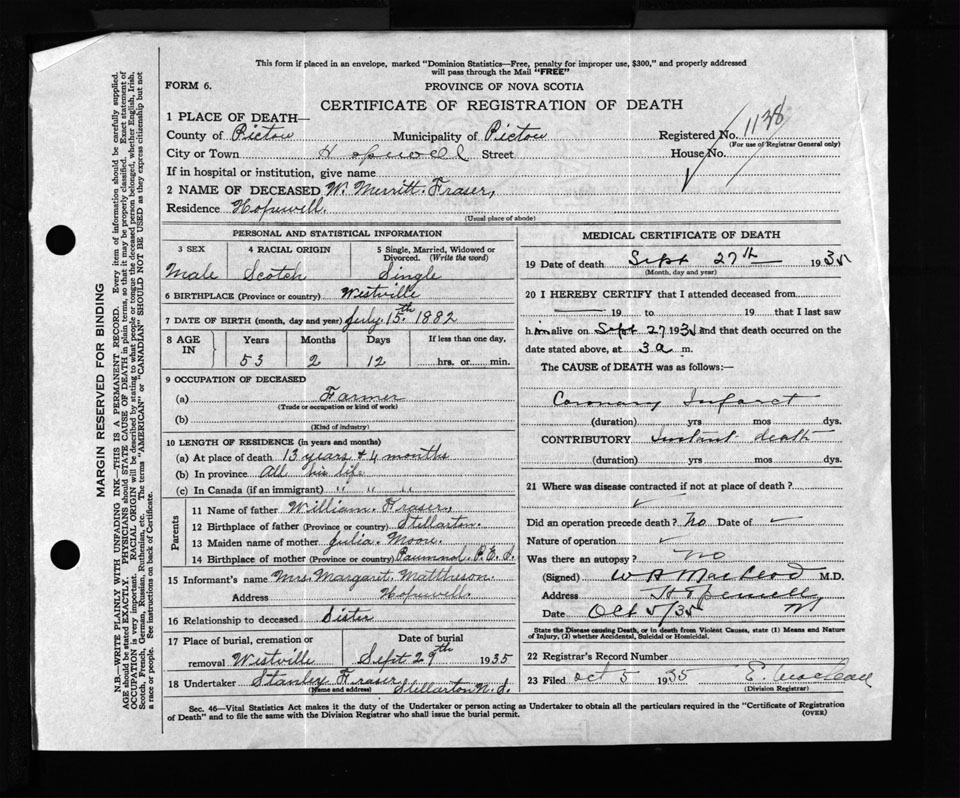 This form if placed in an envelope, marked "Dominion Statistics—Free, penalty for improper use, $300," and properly addressed
will pass through the Mail "FREE"
FORM 6.
PROVINCE OF NOVA SCOTIA
CERTIFICATE OF REGISTRATION OF DEATH
1 PLACE OF DEATH—
County of Pictou Municipality of Pictou Registered No. 1138
(For use of Registrar General only)
City or Town Hopewell Street House No.
If in hospital or institution, give name
2 NAME OF DECEASED W. Merritt Fraser,
Residence Hopewell.
(Usual place of abode)
PERSONAL AND STATISTICAL INFORMATION
3 SEX 4 RACIAL ORIGIN 5 Single, Married, Widowed or
Divorced. (Write the word)
Male Scotch Single
6 BIRTHPLACE (Province or country) Westville
7 DATE OF BIRTH (month, day and year) July 15th 1882
8 AGE IN Years Months Days If less than one day,
53 2 12 hrs. or min.
9 OCCUPATION OF DECEASED
(a) Farmer
(Trade or occupation or kind of work)
(b)
(Kind of industry)
10 LENGTH OF RESIDENCE (in years and months)
(a) At place of death 13 years & 4 months
(b) In province All his life
(c) In Canada (if an immigrant) " " "
Parents
11 Name of father William Fraser,
12 Birthplace of father (Province or country) Stellarton.
13 Maiden name of mother Julia Moore
14 Birthplace of mother (Province or country) P.E.I.
15 Informant's name Mrs. Margaret Matheson
Address Hopewell
16 Relationship to deceased Sister
17 Place of burial, cremation or Date of burial
removal Westville Sept 29th 1935
18 Undertaker Stanley Fraser Stellarton N.S.
(Name and address)
MEDICAL CERTIFICATE OF DEATH
19 Date of death Sept 27th 1935
(Month, day and year)
20 I HEREBY CERTIFY that I attended deceased from
19 to 19 that I last saw
him alive on Sept 27 1935 and that death occurred on
date stated above, at 3 a m.
The CAUSE of DEATH was as follows:—
Coronary Infarct
(duration) yrs mos dys.
CONTRIBUTORY Instant death
(duration) yrs mos dys.
21 Where was disease contracted if not at place of death?
Did an operation precede death? No Date of
Nature of operation
Was there an autopsy? No
(Signed) W A MacLeod M.D.
Address Hopewell
Date Oct 5/35
State the Disease causing Death, or in death from Violent Causes, state (1) Means and Nature
of Injury, (2) whether Accidental, Suicidal or Homicidal.
22 Registrar's Record Number
23 Filed Oct 5 1935
(Division Registrar)
Sec. 46—Vital Statistics Act makes it the duty of the Undertaker or person acting as Undertaker to obtain all the particulars required in the "Certificate of Registration
of Death" and to file the same with the Division Registrar who shall issue the burial permit.
(OVER)
MARGIN RESERVED FOR BINDING
N.B.—WRITE PLAINLY WITH UNFADING INK—THIS IS A PERMANENT RECORD. Every item of information should be carefully supplied.
AGE should be stated EXACTLY. PHYSICIANS should STATE CAUSE OF DEATH in plain terms, so that it may be properly classified. Exact statement of
OCCUPATION is very important. RACIAL ORIGIN will be described by stating to what people or tongue the deceased person belonged, whether English, Irish,
Scotch, French, German, Russian, Ruthenian, etc. The terms "AMERICAN" or "CANADIAN" SHOULD NOT BE USED as they express citizenship but not
a race or people. See instructions on back of Certificate.